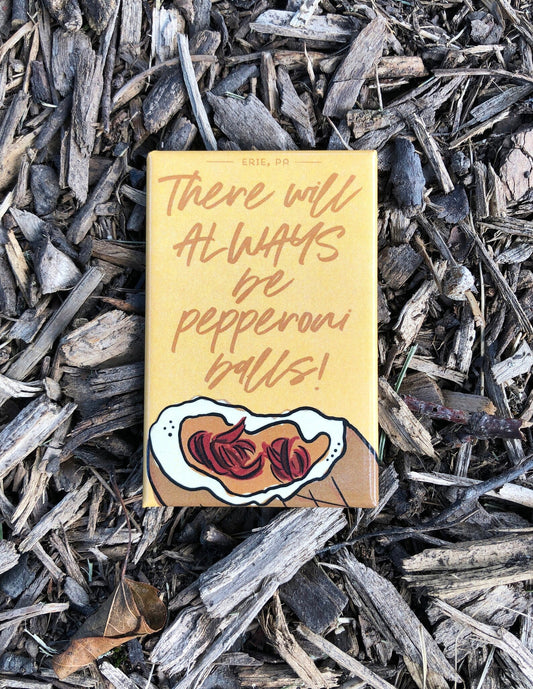 ERIE, PA
There will
ALWAYS
be
pepperoni
balls!